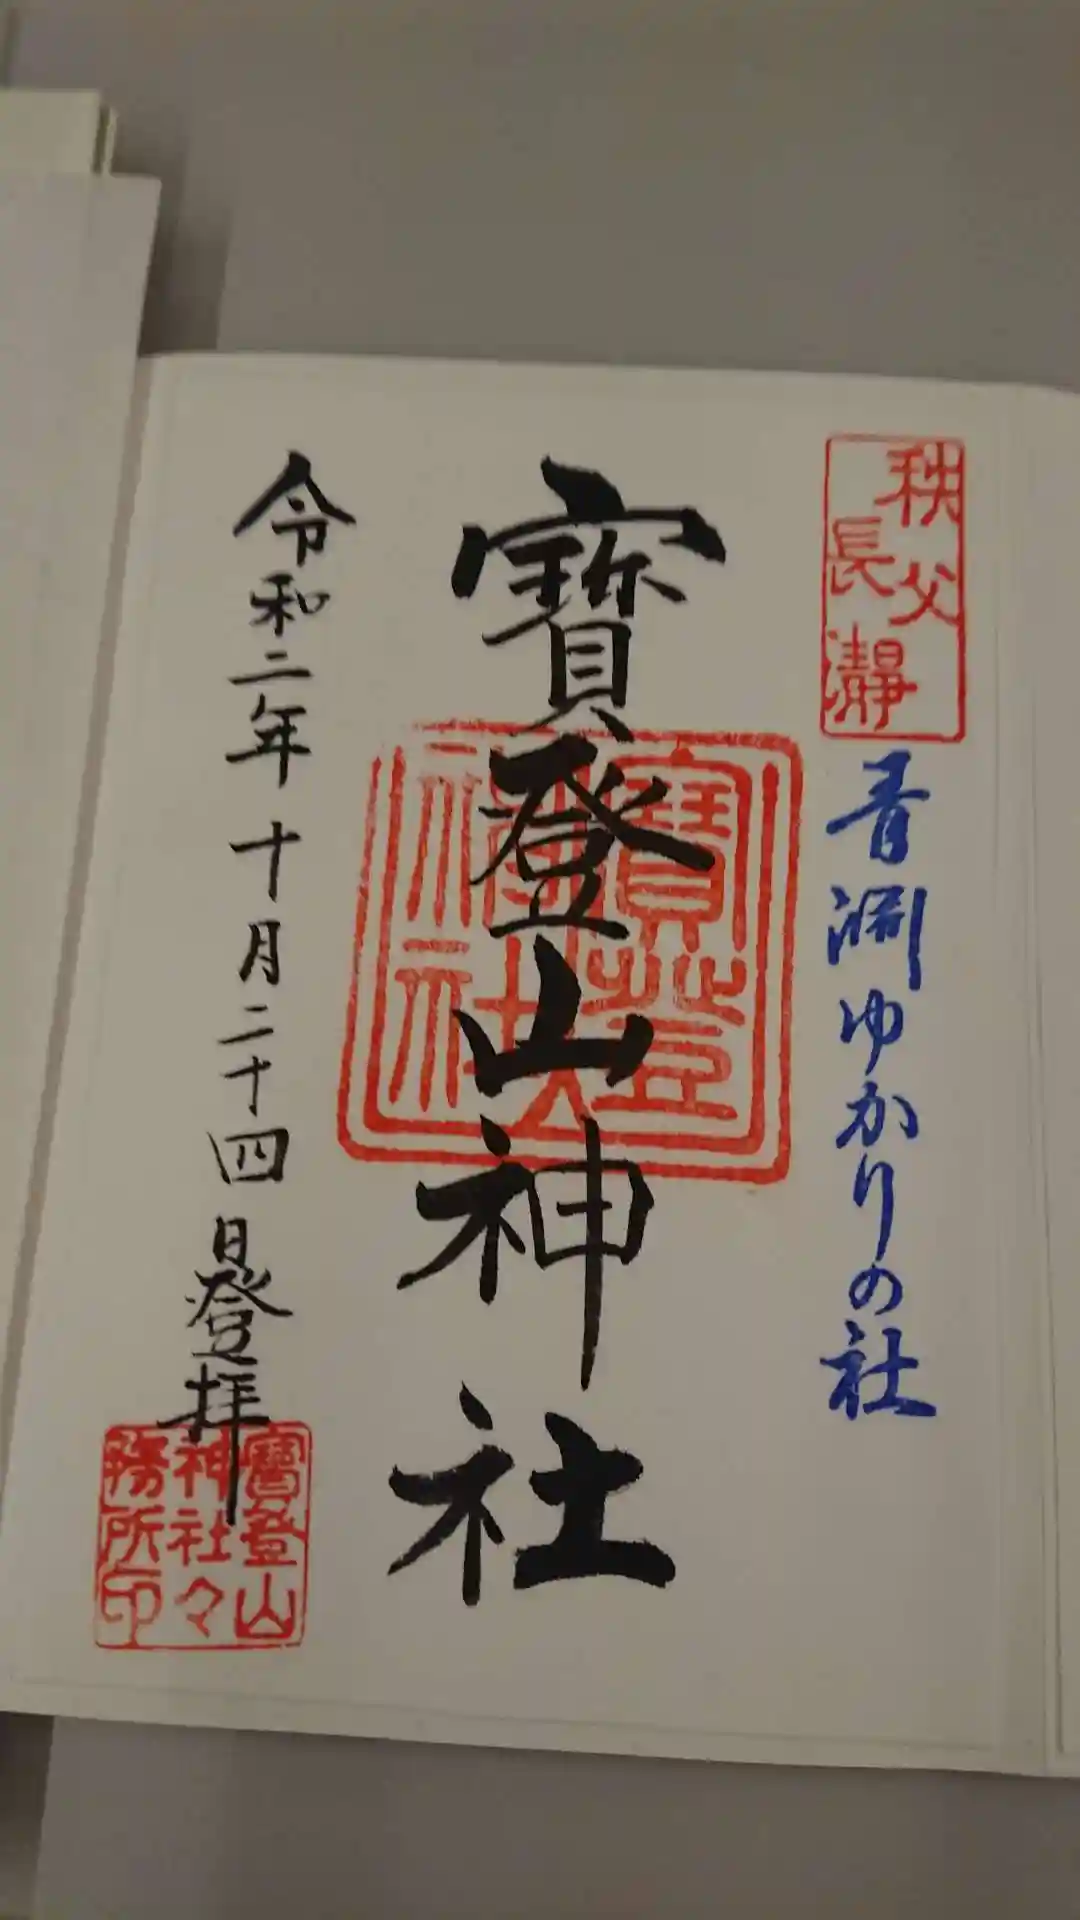 秩父
長瀞
青淵ゆかりの社
寶登山神社
寶登
山神
社
令和二年十月二十四日登拝
寶登山
神社々
務所印